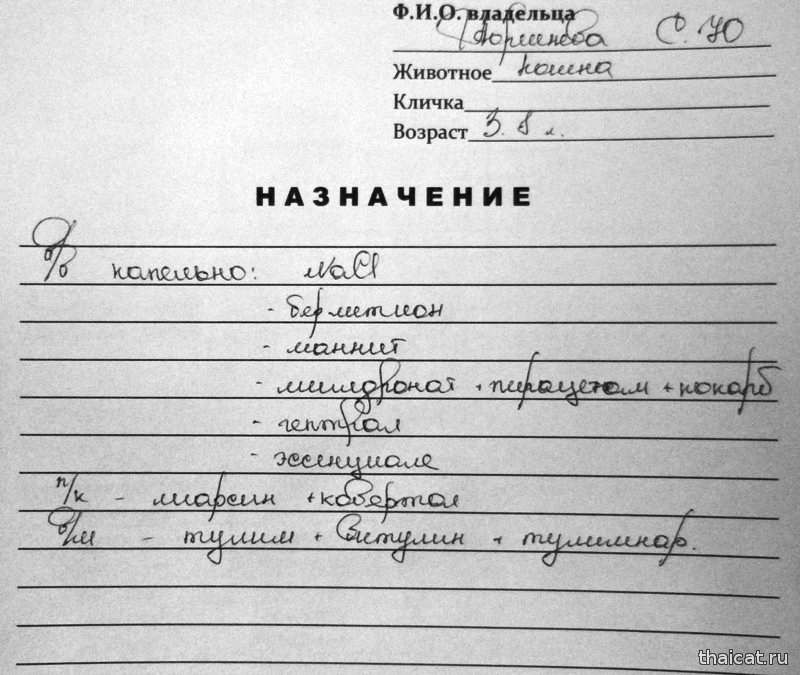 Ф.И.О. владельца
С. Ю
Животное кошка
Кличка
Возраст 3.8 л.
НАЗНАЧЕНИЕ
в/в капельно: NaCl
- берлитион
- маннит
- милдронат + пирацетам + кокарб
- гептрал
- эссенциале
п/к - лиарсин + ковертал
в/м - тулим + Витулин + тулимнар.
thaicat.ru